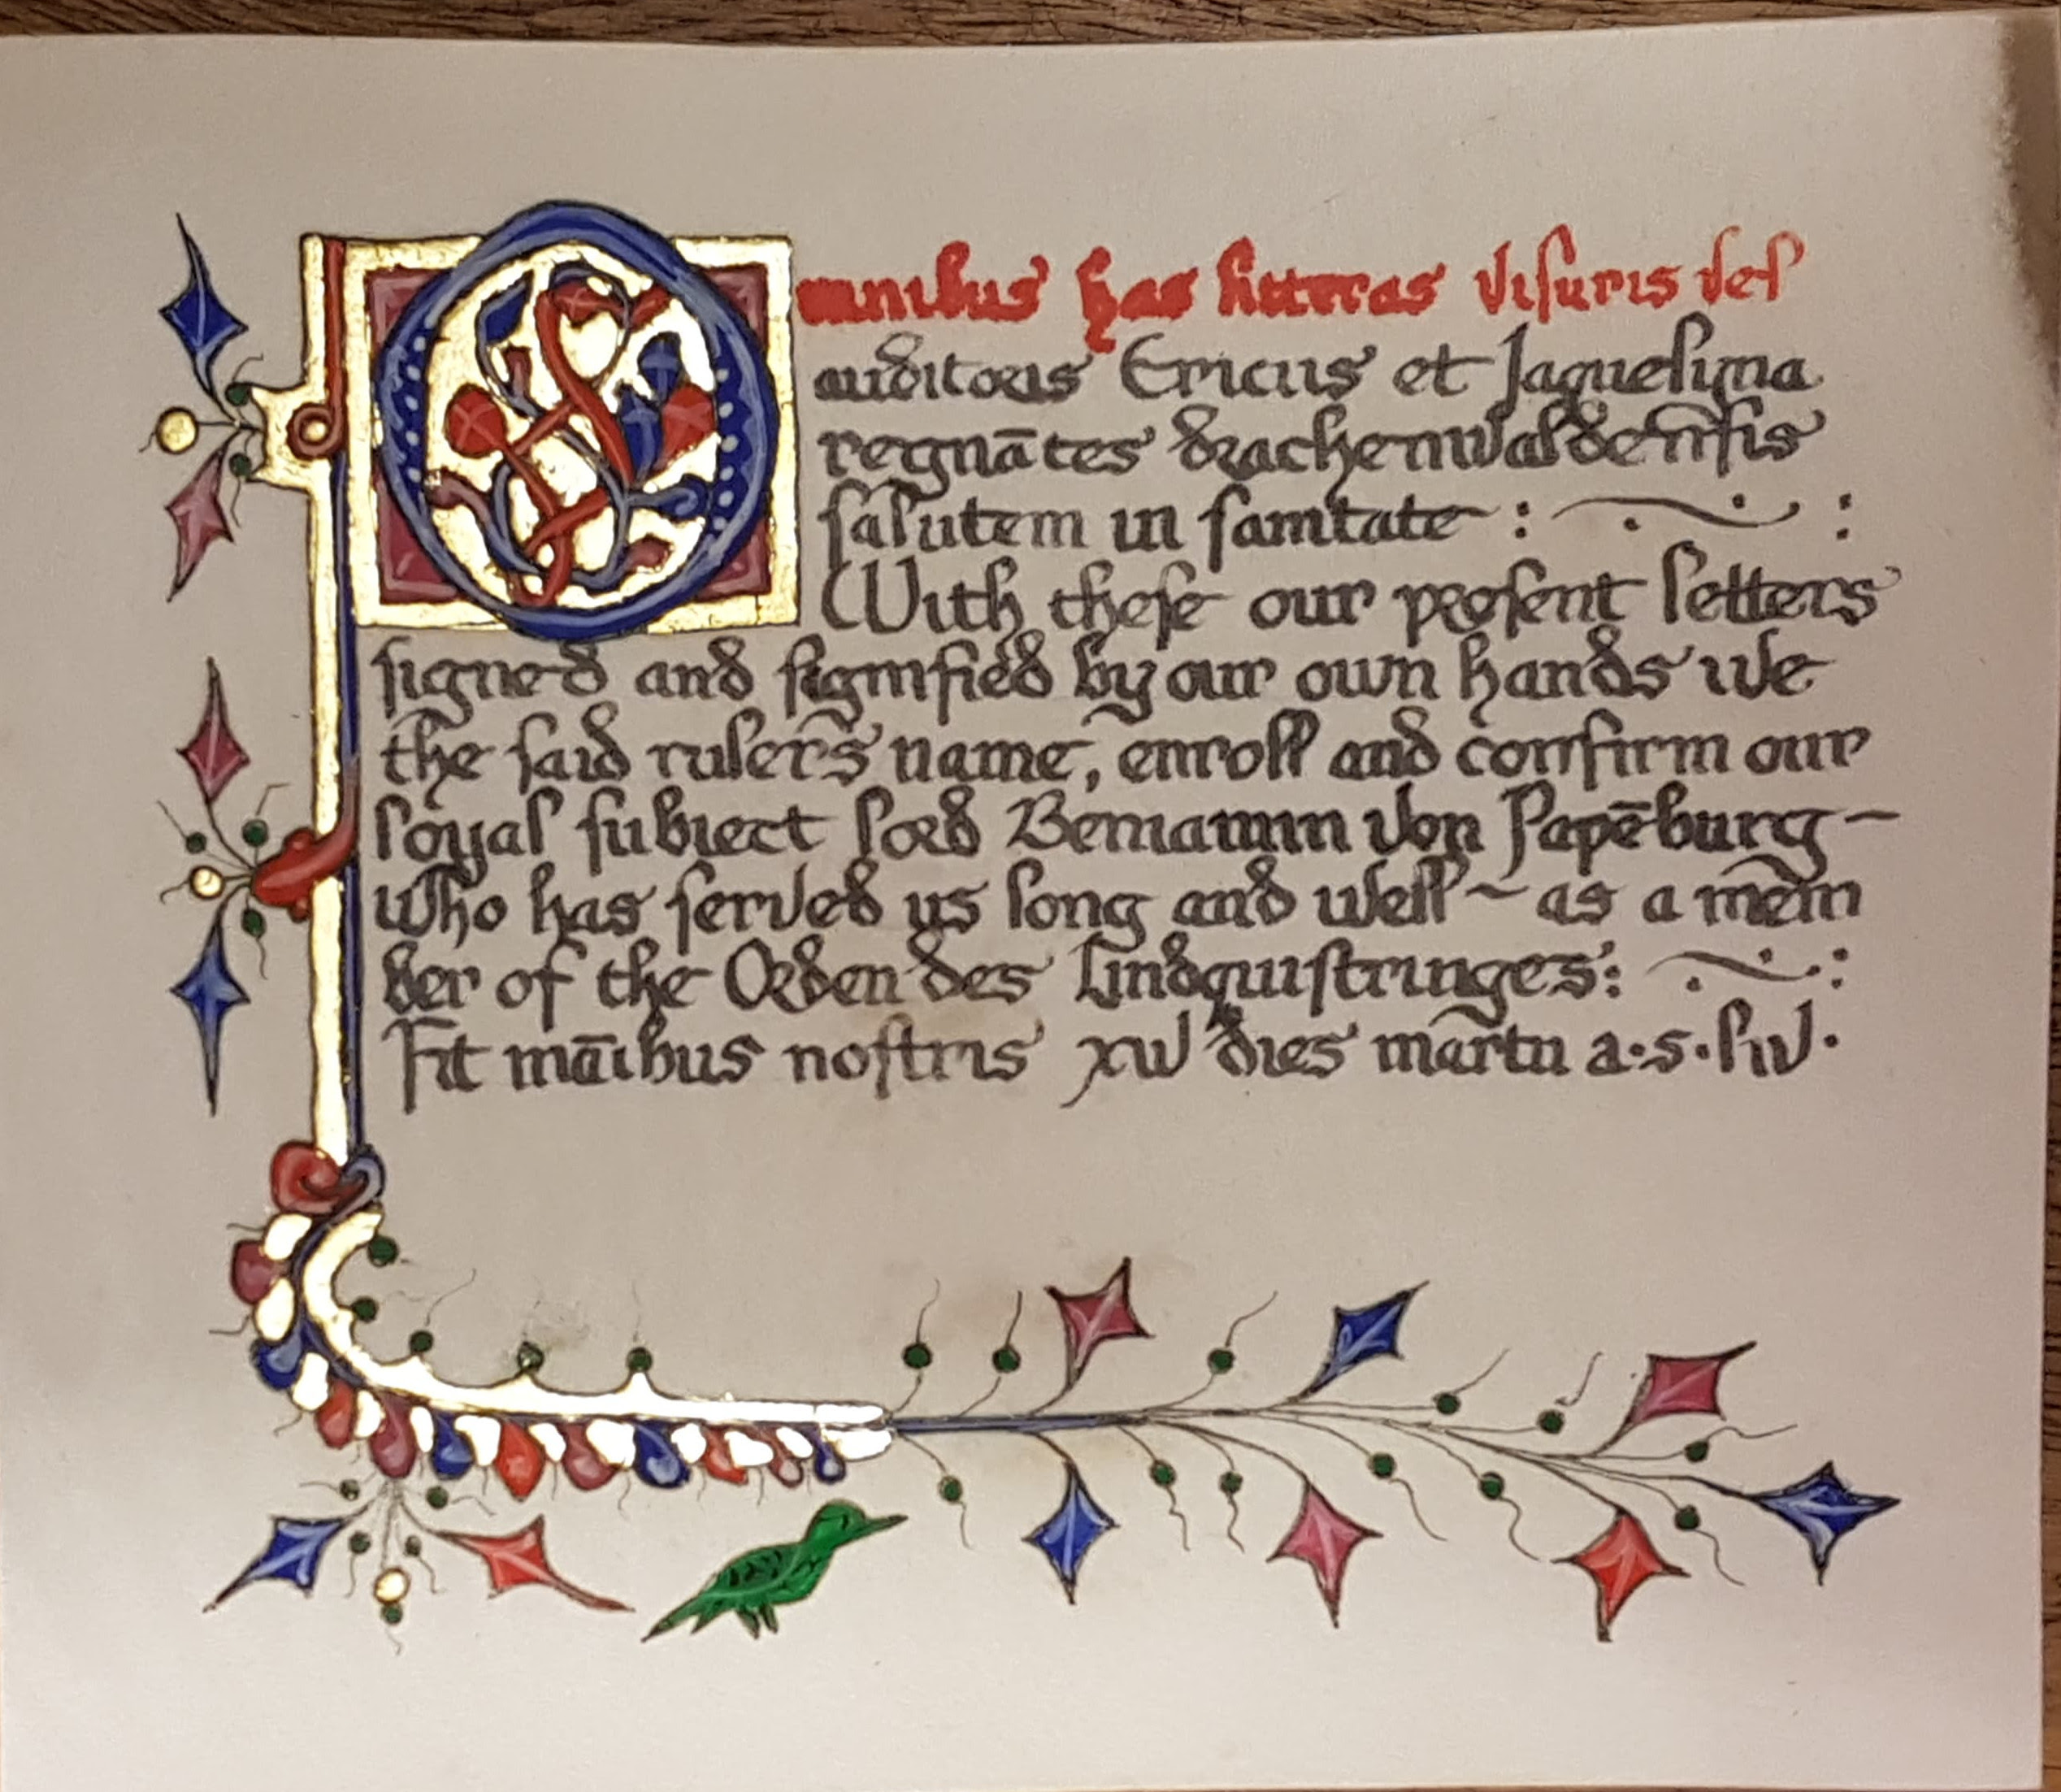 Omnibus has litteras visuris vel
auditoris Ericus et Jaquelina
regnātes drachenwaldēnsis
salutem in sanitate :
With these our present letters
signed and signified by our own hands we
the said rulers name, enroll and confirm our
loyal subiect lord Beniamin von Papēburg
who has served us long and well ~ as a mem
ber of the Orden des Lindquistringes:
Fit māibus nostris xv dies martii a·s·liv·